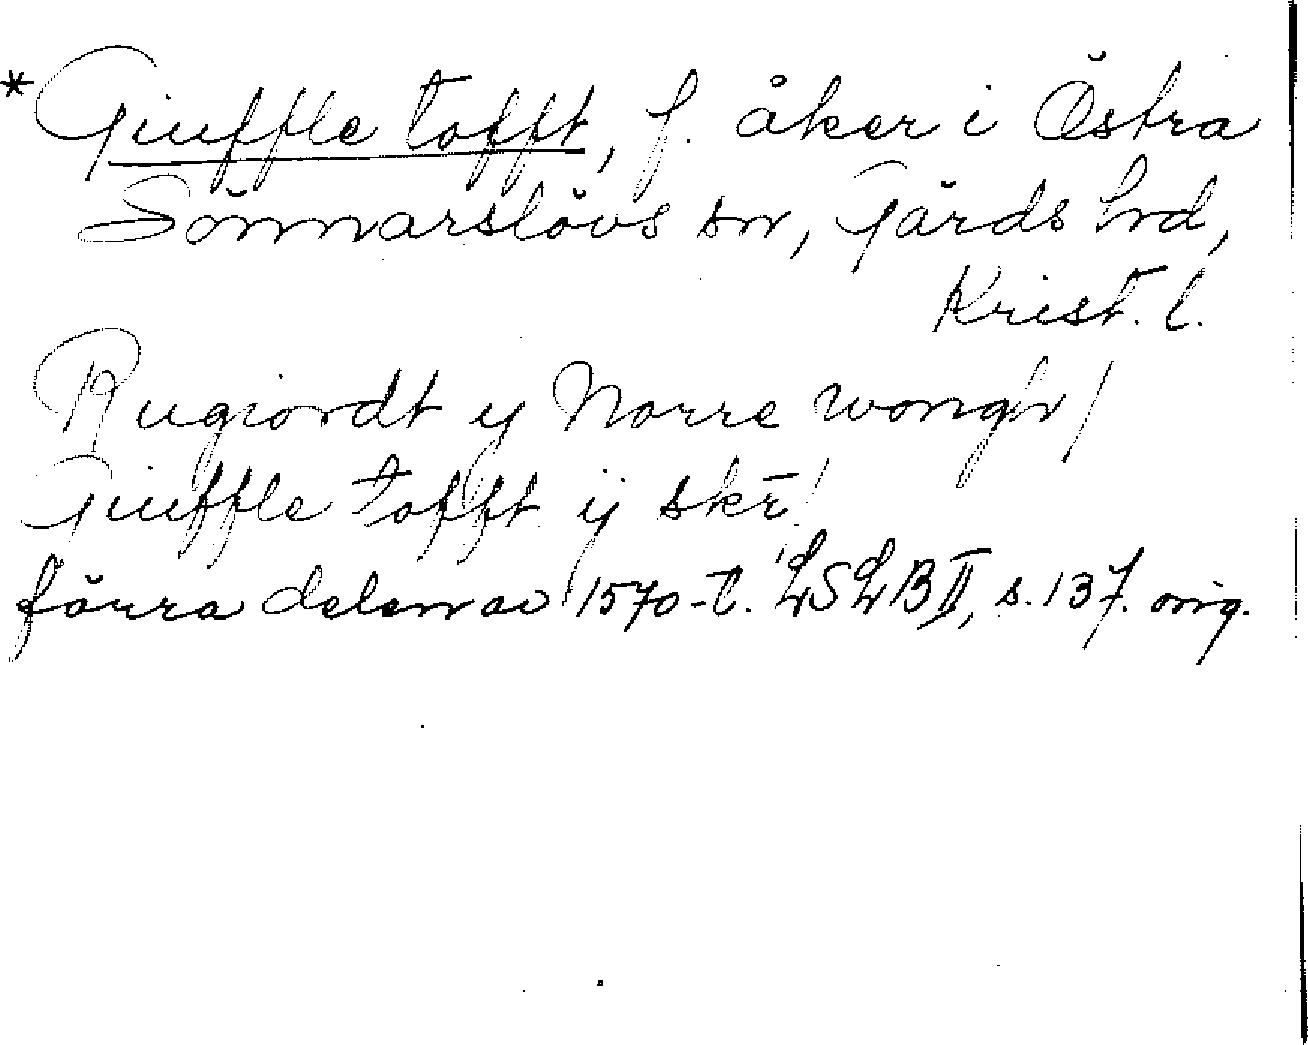 *Giuffle tofft, f. åker i Östra
Sönnarslövs sn, Gärds hd,
Krist. l.
Rugiordt y Norre wongh/
Giuffle tofft ij skr̄!
förra delen av 1570-t. LSLB II, s. 137. orig.